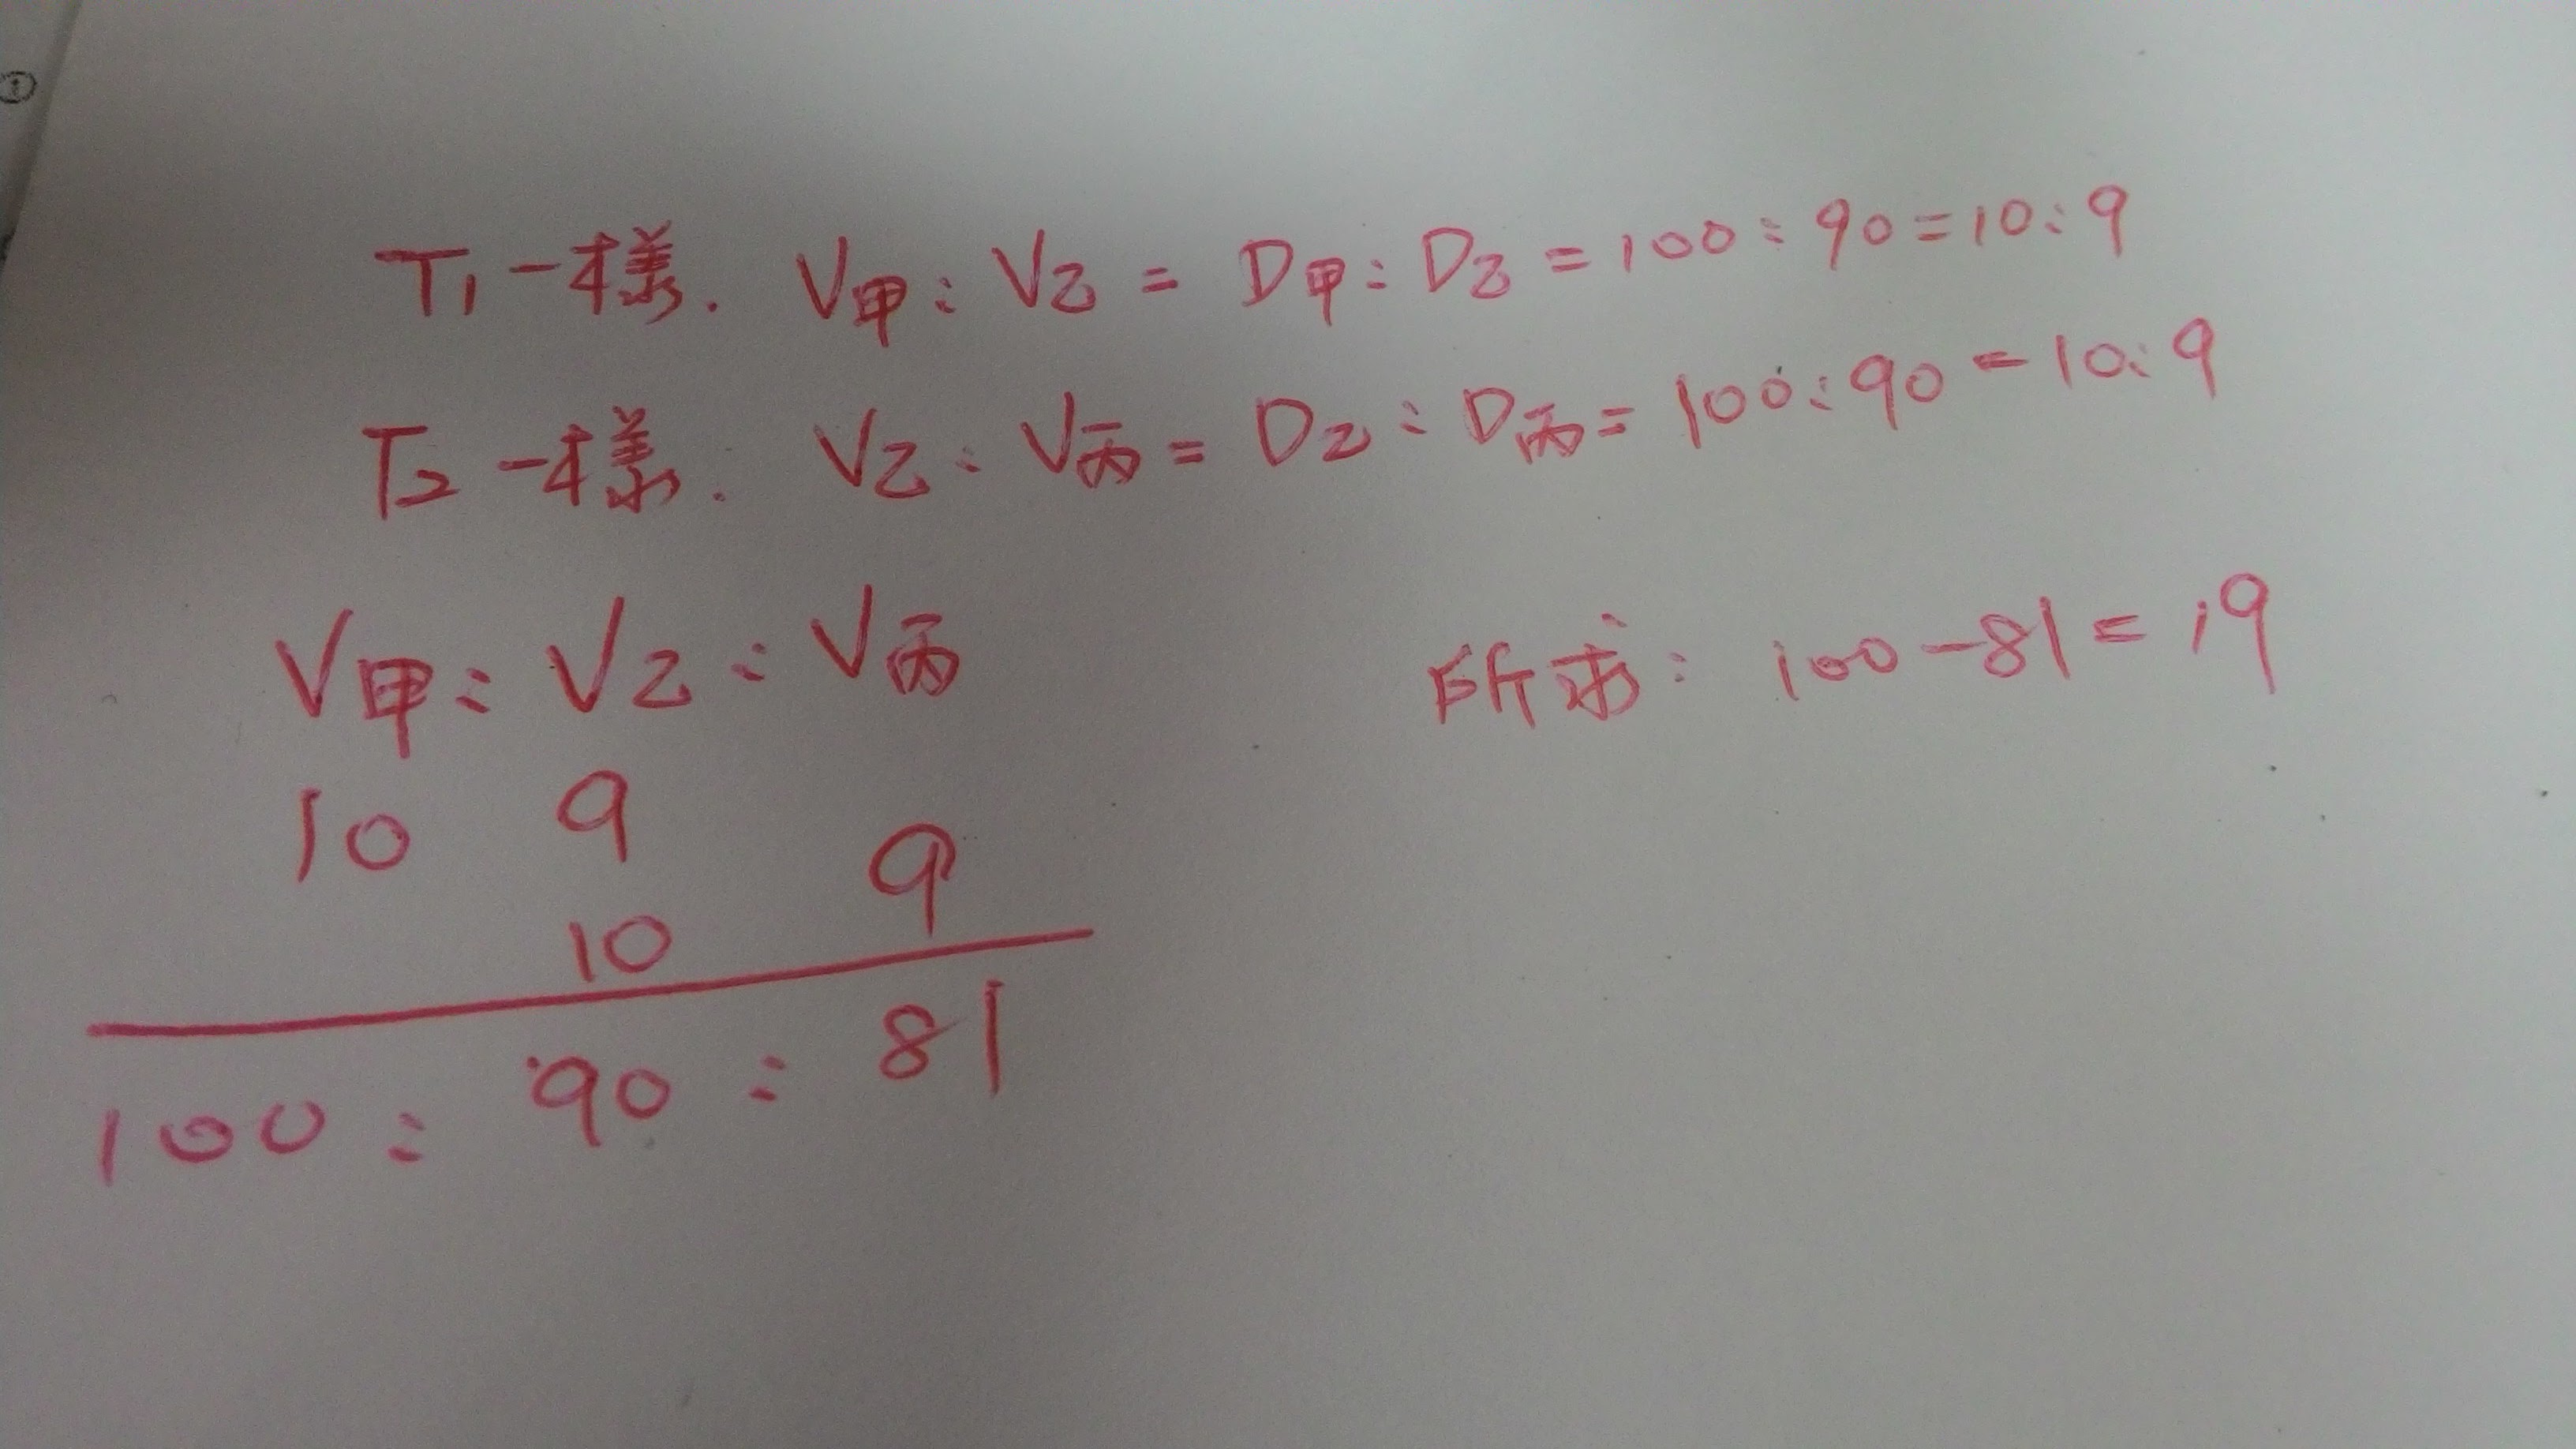 ①
T₁一樣. V甲:V乙 = D甲:D乙 = 100:90=10:9
T₂一樣. V乙:V丙 = D乙:D丙 = 100:90=10:9
V甲:V乙:V丙
所求: 100-81=19
10 9
9
10
100 : 90 : 81